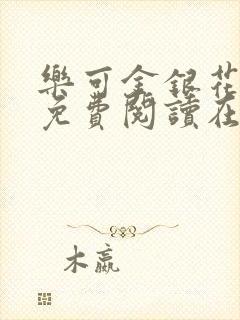 樂可金銀花
免費閱讀在
木嬴